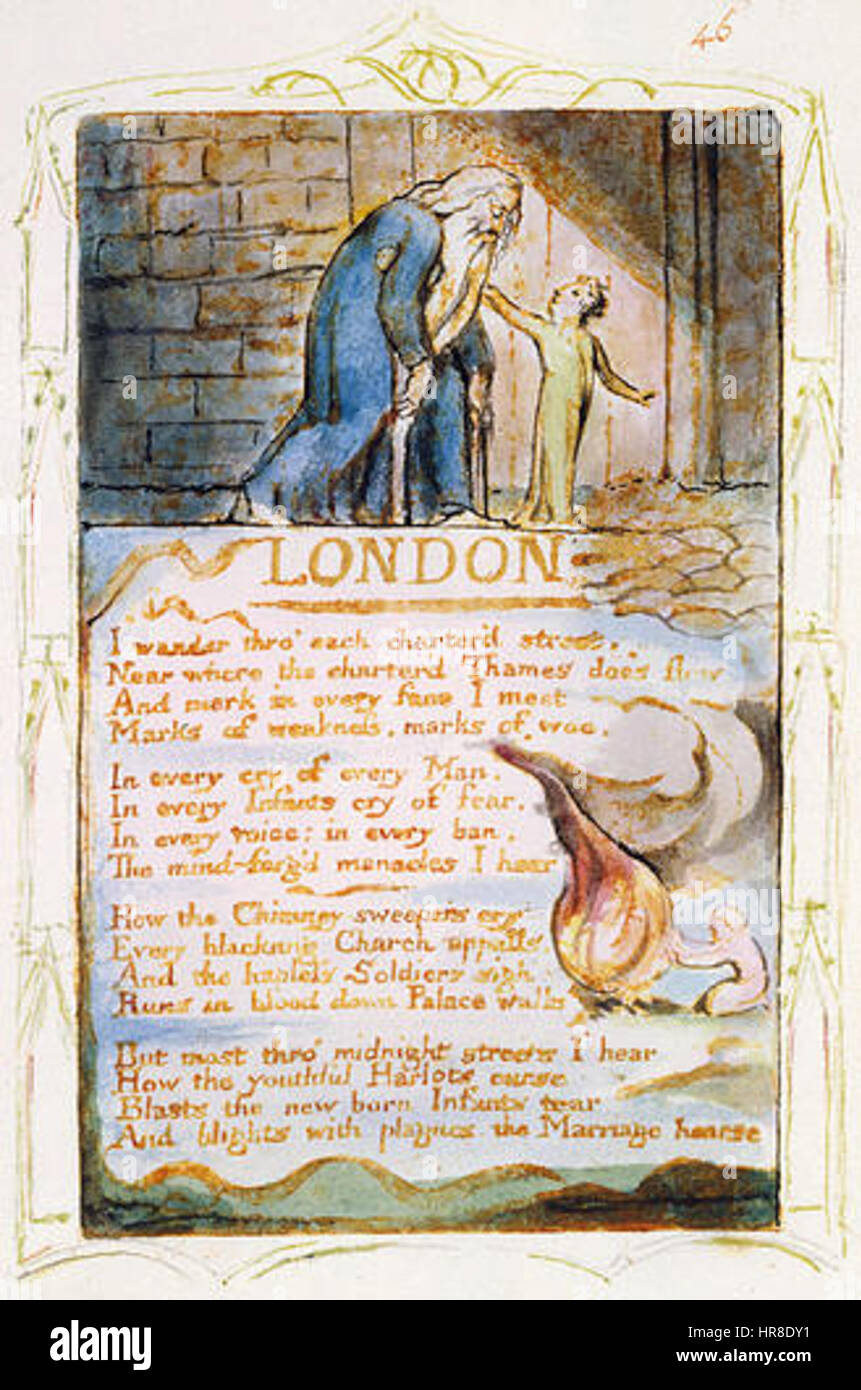 46
LONDON
I wander thro' each charter'd street.
Near where the charter'd Thames does flow
And mark in every face I meet
Marks of weakness, marks of woe.
In every cry of every Man.
In every Infants cry of fear.
In every voice; in every ban.
The mind-forg'd manacles I hear
How the Chimney sweepers cry
Every blackning Church appalls
And the hapless Soldiers sigh
Runs in blood down Palace walls
But most thro' midnight streets I hear
How the youthful Harlots curse
Blasts the new born Infants tear
And blights with plagues the Marriage hearse
alamy
alamy
alamy stock photo
HR8DY1
www.alamy.com